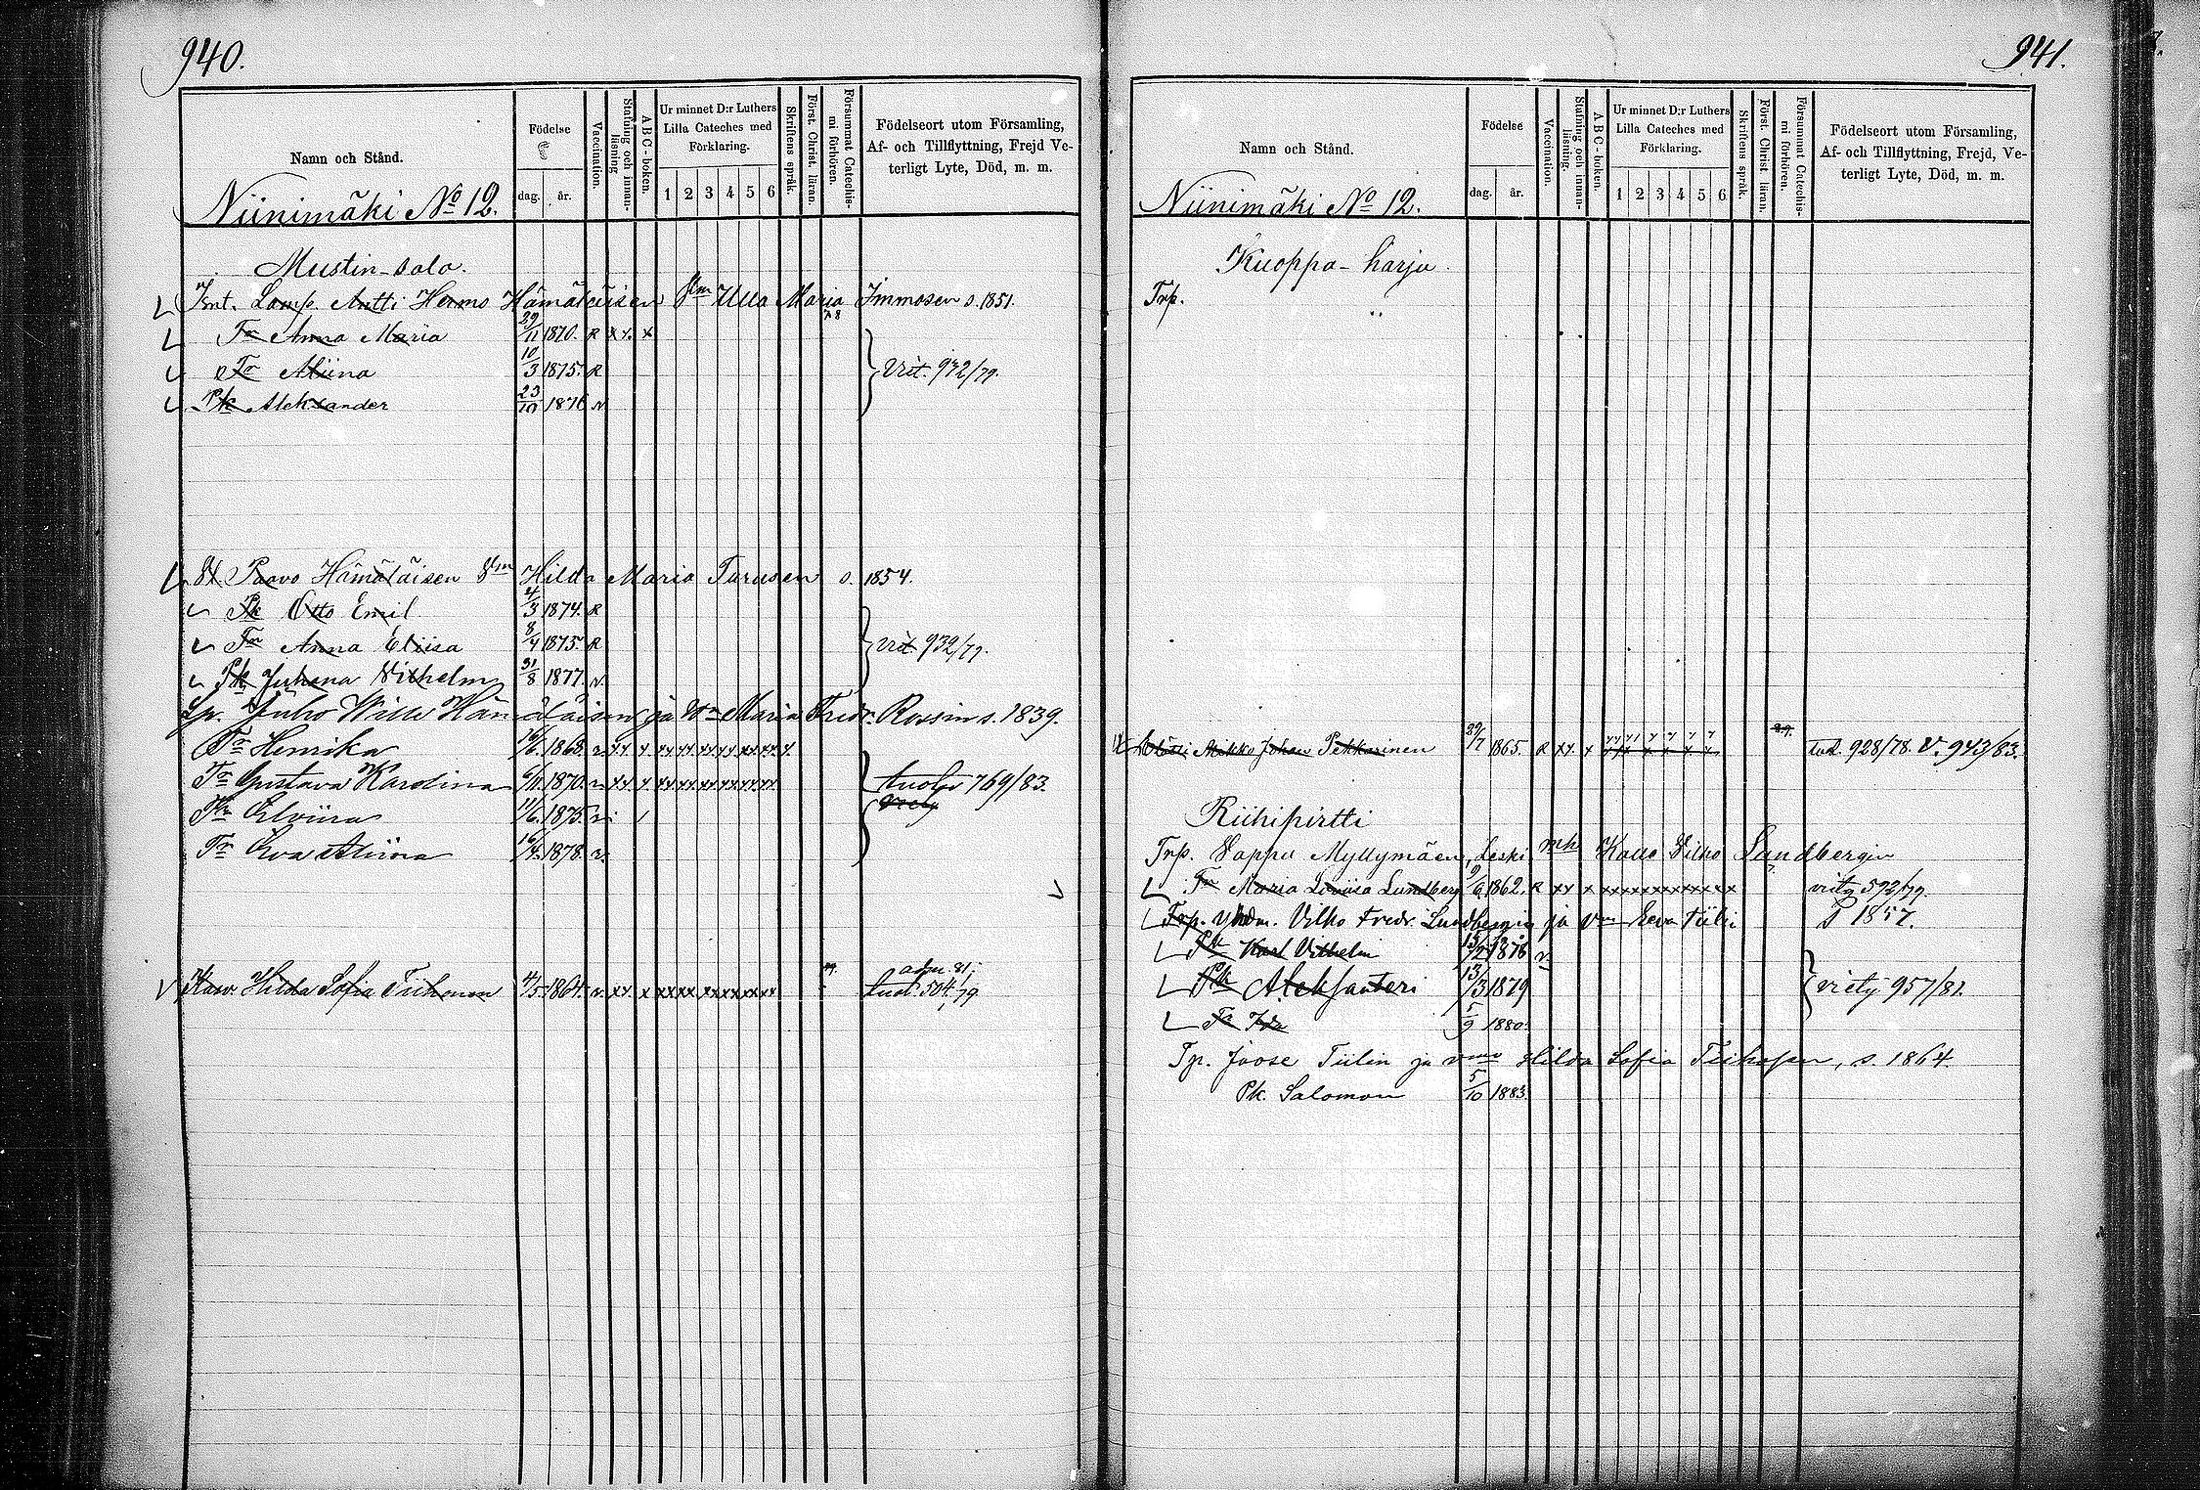 940.
Namn och Stånd.
Födelse
dag. år.
Vaccination.
Stafning och innan-läsning
A B C - boken.
Ur minnet D:r Luthers Lilla Cateches med Förklaring.
1 2 3 4 5 6
Skriftens språk.
Först. Christ. läran.
Försummat Catechismi förhören.
Födelseort utom Församling, Af- och Tillflyttning, Frejd Veterligt Lyte, Död, m. m.
Niinimäki No 12.
Mustin-salo.
Antti Hermo Hämäläisen Vm Ulla Maria Immosen s. 1851.
78
Tr Anna Maria 29/11 1870. R x x. x
Tr Miina 10/3 1875. R
Vrt. 932/79.
Pk Aleksander 23/10 1876 v.
Paavo Hämäläisen Vm Hilda Maria Turusen s. 1854.
Pk Otto Emil 4/3 1874. R
Tr Anna Eliisa 8/4 1875. R
vrt 932/79.
Pk Juhana Vilhelm 31/8 1877. v.
Lp. Juho Wille Hämäläisen ja Vm Maria Fredr. Rossin s. 1839.
Tr Henrika 16/6. 1868.
Tr Gustava Karolina 6/11. 1870.
tuolta 769/83.
Elviina 11/6. 1875.
Tr Eva Miina 16/4. 1878. v.
Kasv. Hilda Sofia Tiihonen 4/5 1864. v.
adm. 81;
tuol. 504/79.
941.
Namn och Stånd.
Födelse
dag. år.
Vaccination.
Stafning och innan-läsning.
A B C - boken.
Ur minnet D:r Luthers Lilla Cateches med Förklaring.
1 2 3 4 5 6
Skriftens språk.
Först. Christ läran.
Försummat Catechismi förhören.
Födelseort utom Församling, Af- och Tillflyttning, Frejd, Veterligt Lyte, Död, m. m.
Niinimäki No 12.
Kuoppa-harju.
Trp.
Mikko Johan Pekkarinen 29/7 1865. R
928/78. V. 943/83.
Riihipirtti
Trp. Vappu Myllymäen, Leski, mh Kalle Vilho Lundbergin
Tr Maria Loviisa Lundberg 9/6 1862. R
virty 592/79.
Trp. Vilho Fredr. Lundbergin ja Vm Eeva Tiilin
S 1857.
Pk Karl Vilhelm 1876 v.
Pk Aleksanteri 13/3 1879
virty 957/81.
Tr Ida 5/9 1880.
Tp. Joose Tiilin ja vmo Hilda Sofia Tiihosen, s. 1864.
Pk. Salomon 5/10 1883.